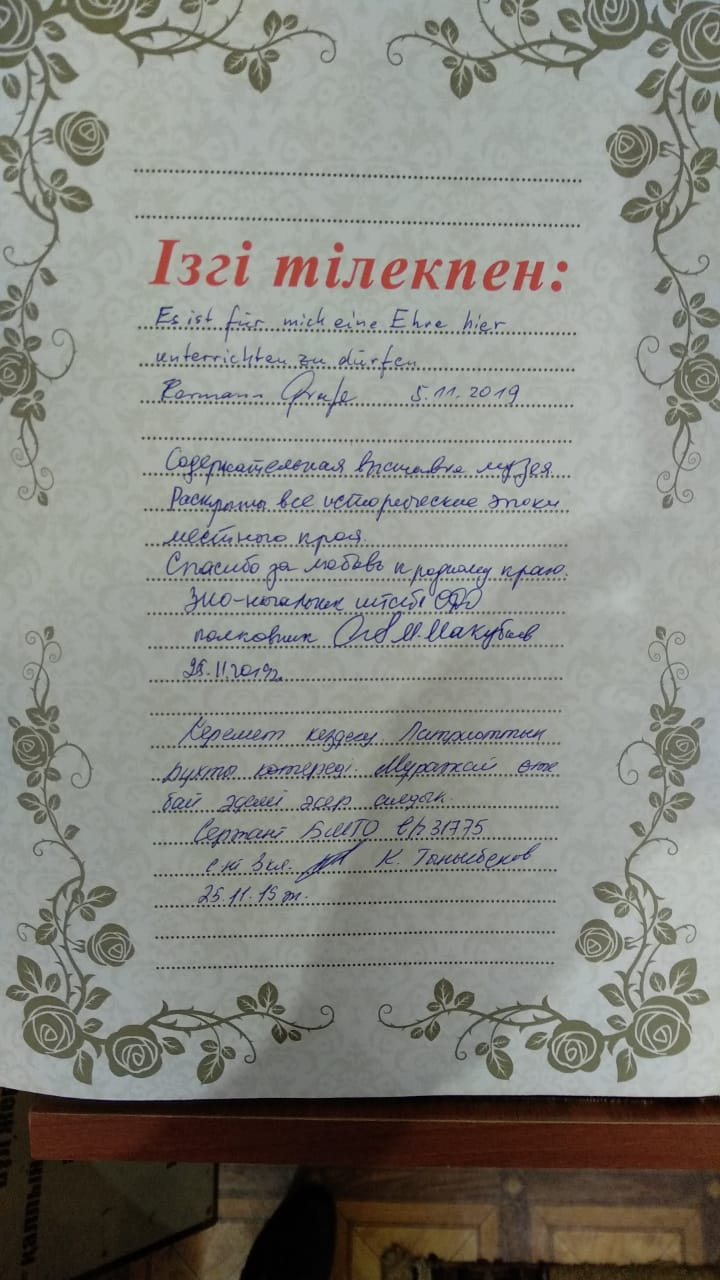 Ізгі тілекпен:
Es ist für mich eine Ehre hier
unterrichten zu dürfen
5.11.2019
Содержательная выставка музея.
Раскрыты все исторические эпохи
местного края.
Спасибо за любовь к родному краю.
полковник М.Макубаев
25.11.2019г.
Керемет кездесу. Патриоттың
рухты көтереді. Мұражай өте
бай әдемі әсер
Сержант БМТО в/ч 31775
К. Таныбеков
25.11.19ж.